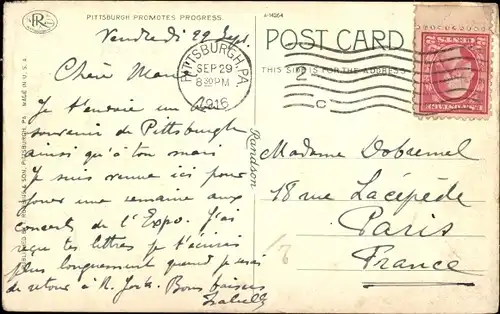 PITTSBURGH PROMOTES PROGRESS.
A-14264
Vendredi 29 Sept.
POST CARD
THIS SIDE IS FOR THE ADDRESS
PITTSBURGH, PA.
SEP 29
8 30 PM
1916
2
C
Chère
Je t'envoie un
souvenir de Pittsburgh
ainsi qu'à ton mari
Je suis venue ici pour
jouer une semaine aux
concerts de l'Expo. J'ai
reçu tes lettres je t'écrirai
plus longuement quand je serai
de retour à N. York. Bons baisers
Madame
18 rue Lacépède
Paris
France
MADE IN U.S.A.
PITTSBURGH, PA.